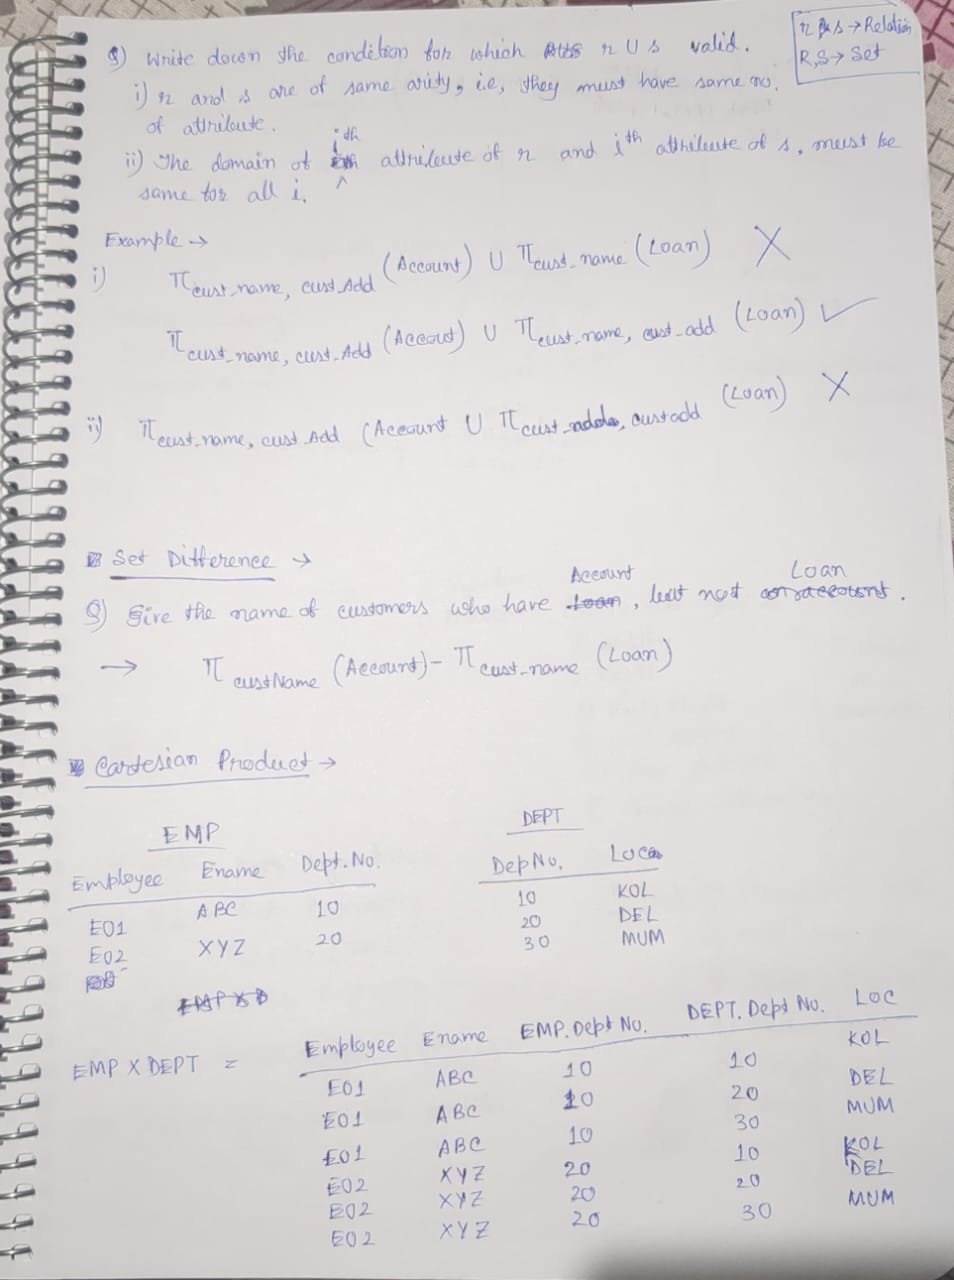 r & s → Relation
R, S → Set
Q) Write down the condition for which r U s valid.
i) r and s are of same arity, i.e, they must have same no.
of attribute.
ii) The domain of ith attribute of r and ith attribute of s, must be
same for all i.
Example →
i) π cust_name, cust_Add (Account) U π cust_name (Loan) X
π cust_name, cust_Add (Accout) U π cust_name, cust_add (Loan) ✓
ii) π cust_name, cust_Add (Account U π cust_add, custadd (Loan) X
Set Difference →
Account Loan
Q) Give the name of customers who have Loan, but not account.
→ π custName (Account) - π cust_name (Loan)
Cartesian Product →
EMP DEPT
Employee Ename Dept.No. DepNo. Loca
E01 ABC 10 10 KOL
E02 XYZ 20 20 DEL
30 MUM
EMP X D
EMP X DEPT = Employee Ename EMP.Dept No. DEPT.Dept No. LOC
E01 ABC 10 10 KOL
E01 ABC 10 20 DEL
E01 ABC 10 30 MUM
E02 XYZ 20 10 KOL
E02 XYZ 20 20 DEL
E02 XYZ 20 30 MUM